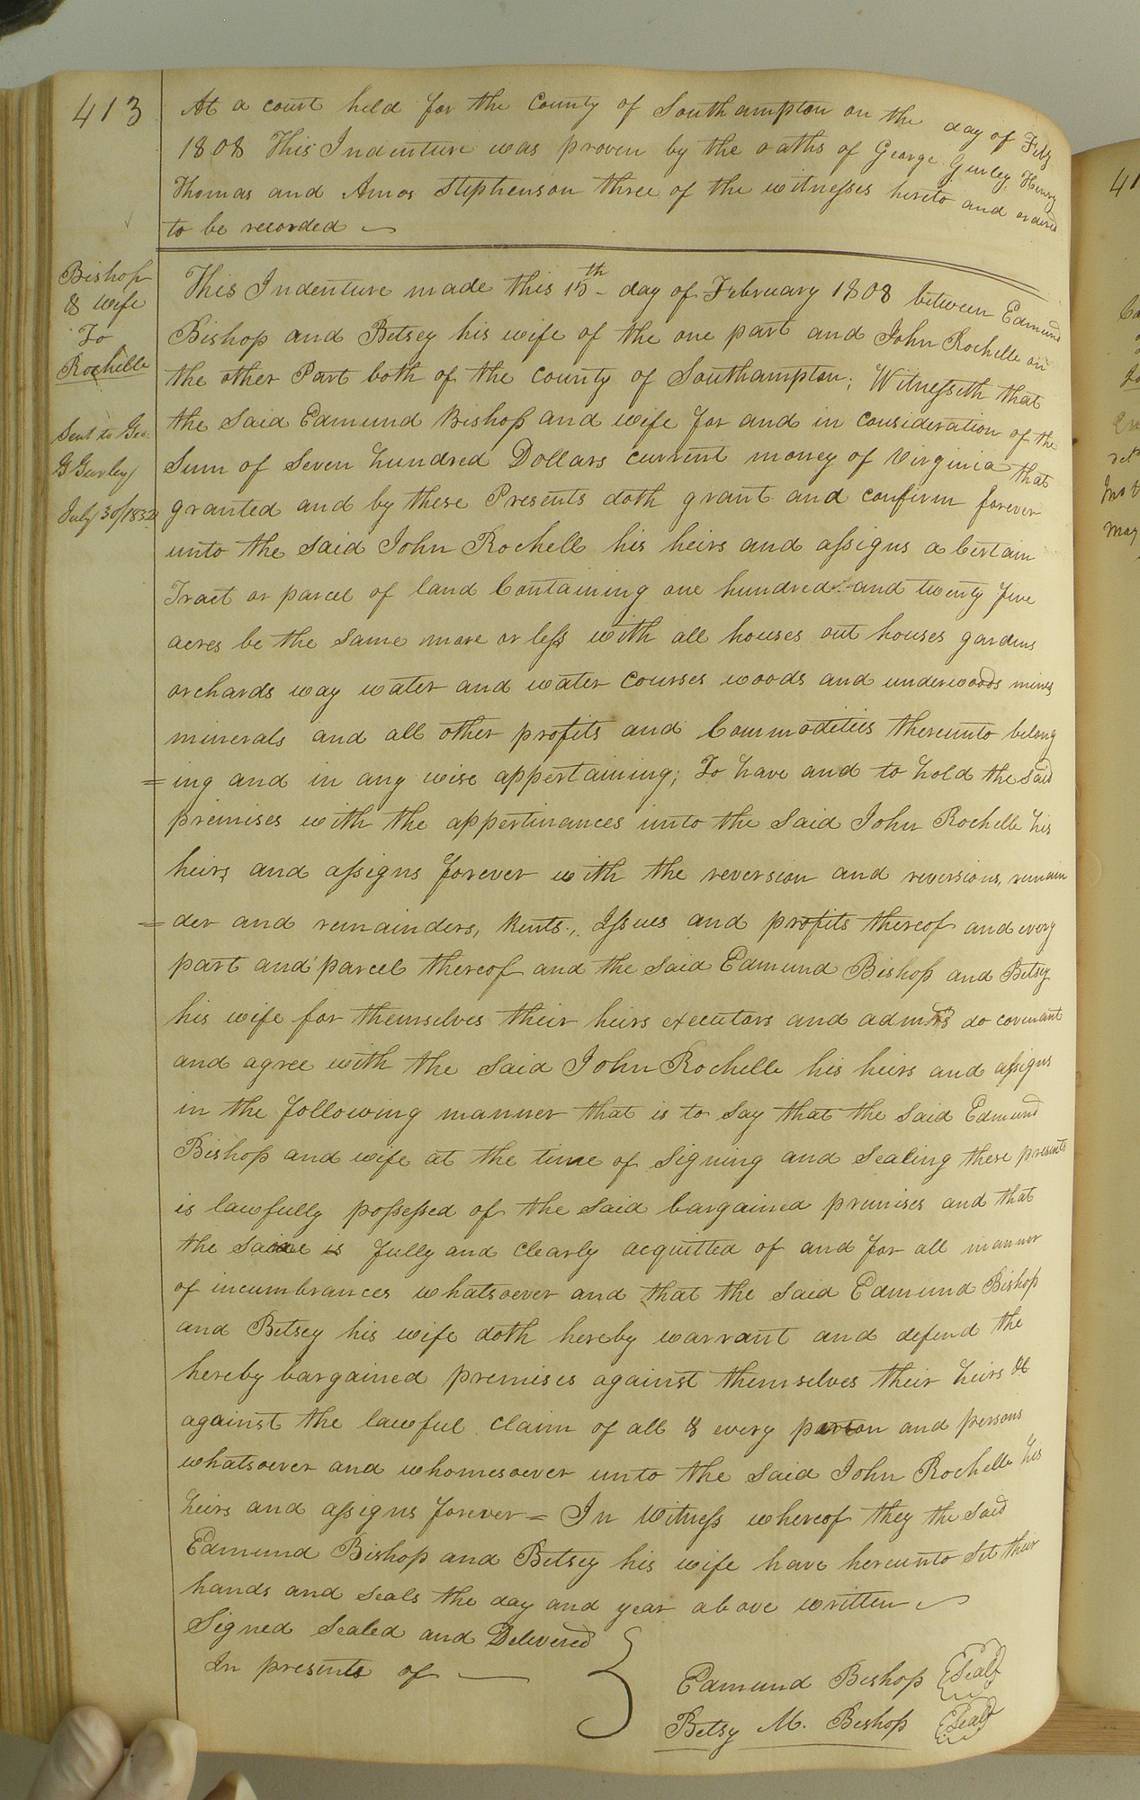 413
At a court held for the County of Southampton on the day of Feby
1808 This Indenture was proven by the oaths of George Gurley, Henry
Thomas and Amos Stephenson three of the witnesses hereto and ordered
to be recorded
Bishop
& wife
To
Rochelle
Sent to Geo.
G Gurley
July 30/1832
This Indenture made this 15th day of February 1808 between Edmund
Bishop and Betsey his wife of the one part and John Rochelle on
the other Part both of the County of Southampton; Witnesseth that
the Said Edmund Bishop and wife for and in consideration of the
Sum of Seven hundred Dollars current money of Virginia that
granted and by these Presents doth grant and confirm forever
unto the Said John Rochell his heirs and assigns a Certain
Tract or parcel of land Containing one hundred and twenty five
acres be the Same more or less with all houses out houses gardens
orchards way water and water courses woods and underwoods mines
minerals and all other profits and Commodities thereunto belong
=ing and in any wise appertaining; To have and to hold the said
premises with the appertinances unto the Said John Rochelle his
heirs and assigns forever with the reversion and reversions, remain
=der and remainders, Rents, Issues and profits thereof and every
part and parcel thereof and the Said Edmund Bishop and Betsy
his wife for themselves their heirs executors and admrs do covenant
and agree with the Said John Rochelle his heirs and assigns
in the following manner that is to Say that the Said Edmund
Bishop and wife at the time of Signing and Sealing these presents
is lawfully possessed of the Said bargained premises and that
the Same is fully and clearly acquitted of and for all manner
of incumbrances whatsoever and that the Said Edmund Bishop
and Betsey his wife doth hereby warrant and defend the
hereby bargained premises against themselves their heirs &
against the lawful claim of all & every person and persons
whatsoever and whomesoever unto the Said John Rochelle his
heirs and assigns forever = In Witness whereof they the said
Edmund Bishop and Betsey his wife have hereunto Set their
hands and Seals the day and year above written
Signed Sealed and Delivered
In presents of
Edmund Bishop Seal
Betsy M. Bishop Seal